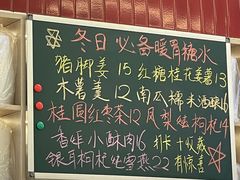 冬日必备暖胃糖水
猪脚姜 15 红糖桂花姜薯13
木薯羹 12 南瓜 米酒酿16
桂圆红枣茶12 凤梨 枸杞14
香炸小酥肉16 非 十 收藏
银耳枸杞炖雪燕22 有惊喜